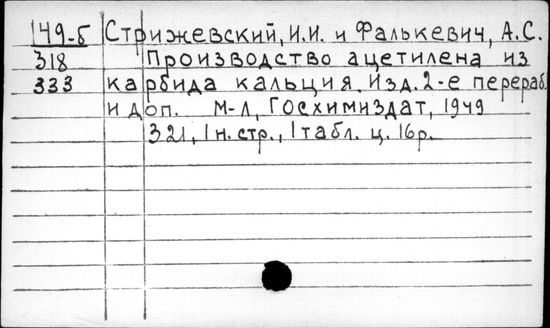 149-б Стрижевский, И.И. и Фалькевич, А.С.
318 Производство ацетилена из
333 карбида кальция. Изд. 2-е перераб.
и доп. М-Л, Госхимиздат, 1949
321, 1 н. стр., 1 табл. ц. 16р.